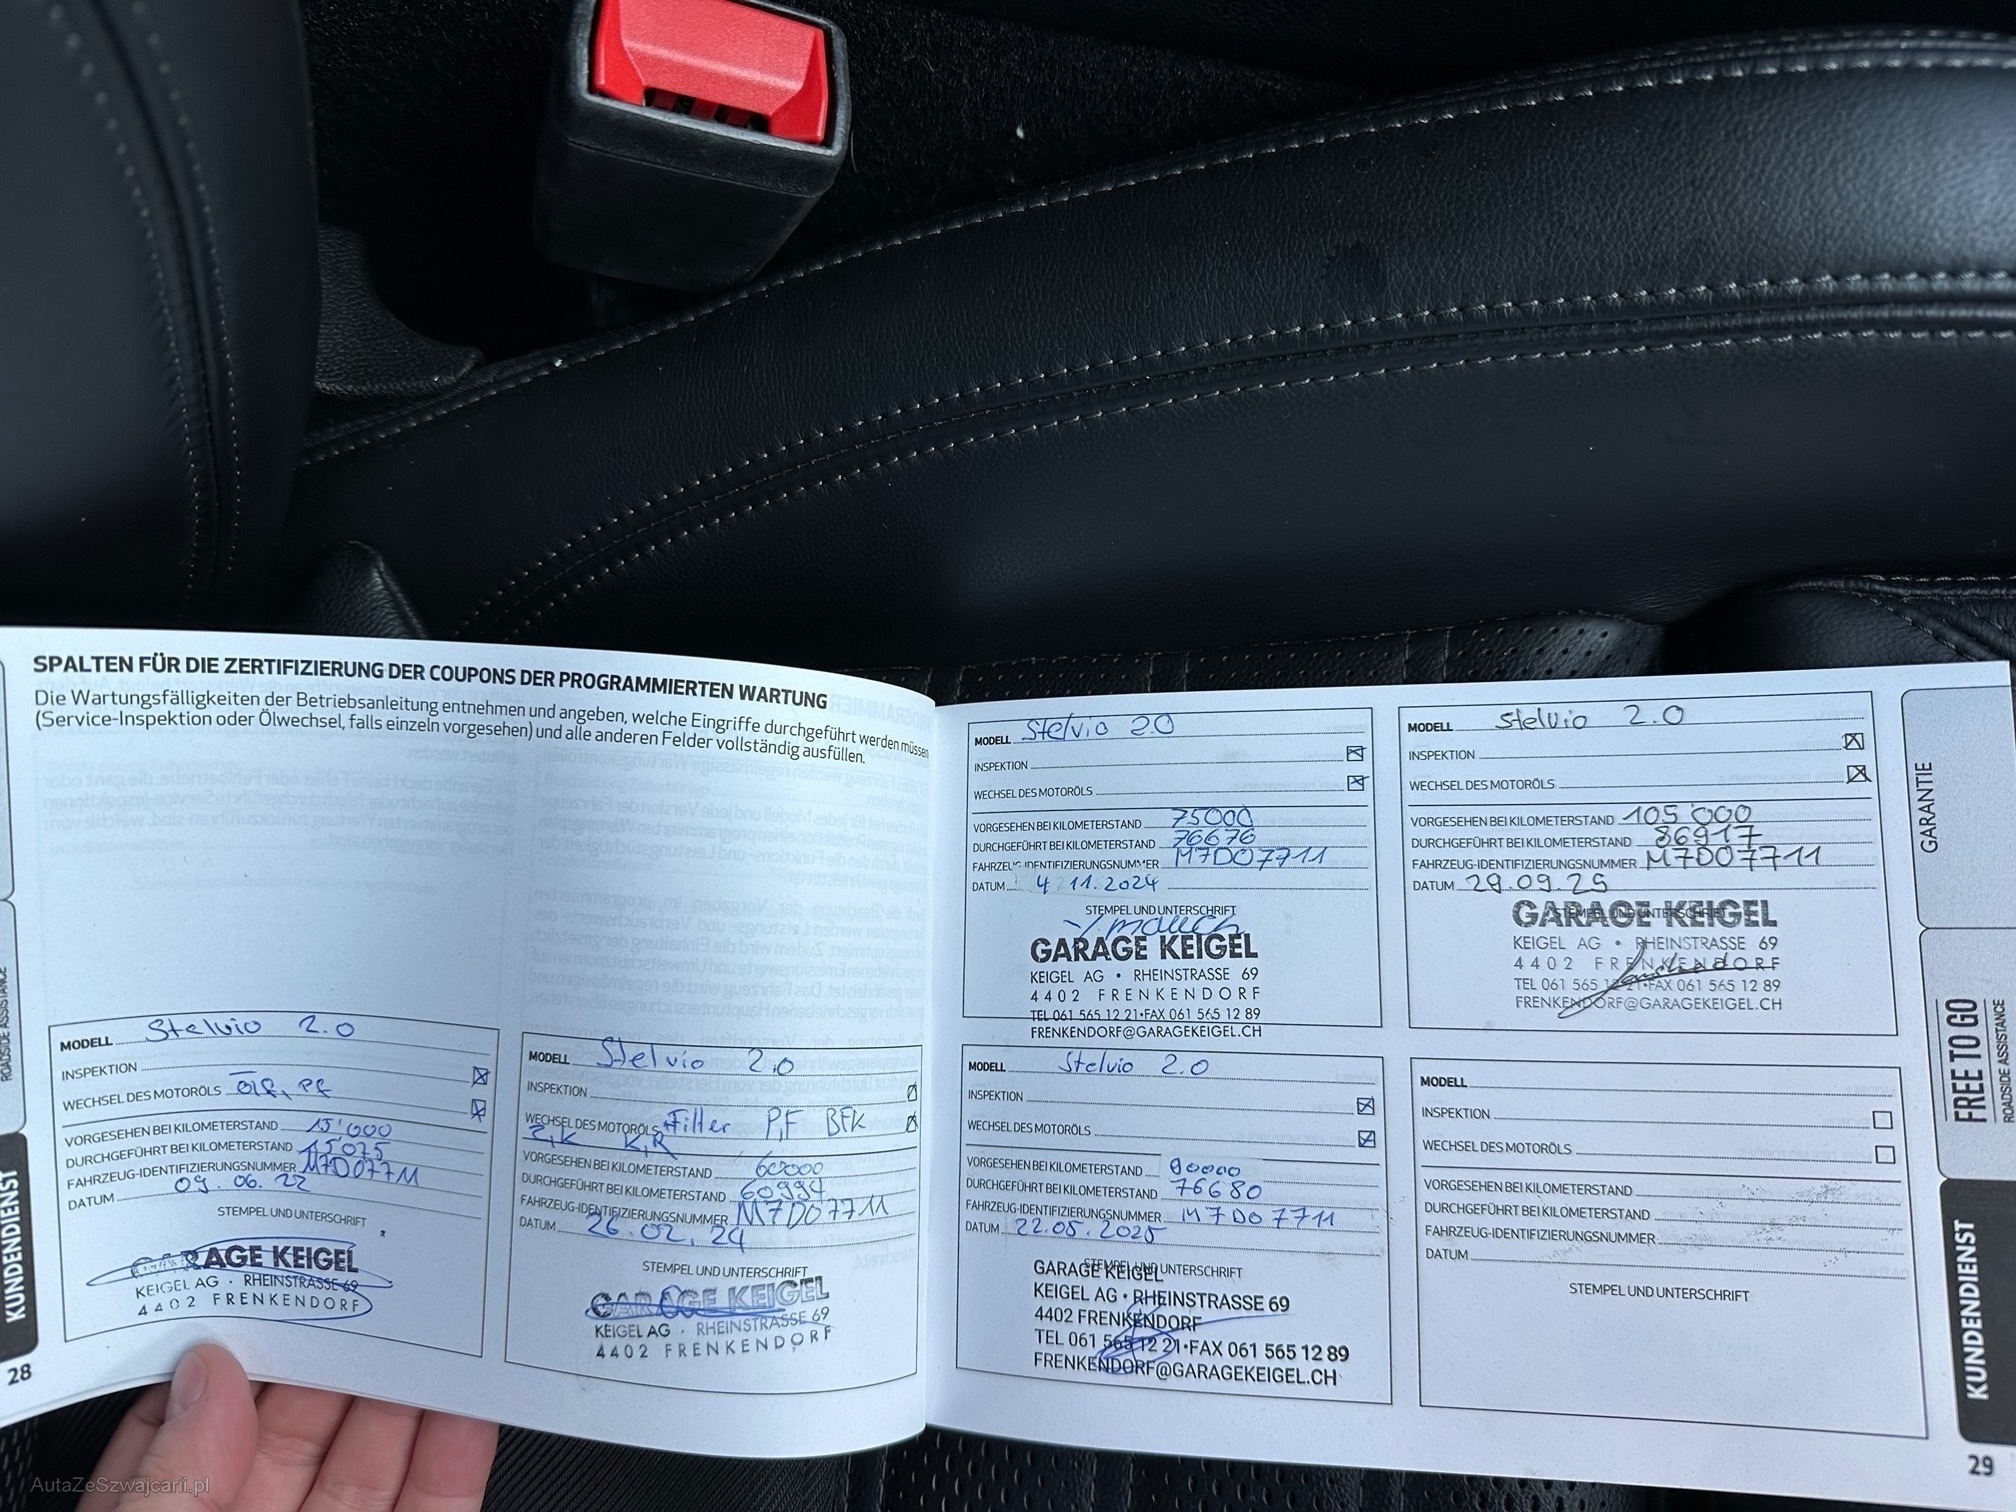 SPALTEN FÜR DIE ZERTIFIZIERUNG DER COUPONS DER PROGRAMMIERTEN WARTUNG
Die Wartungsfälligkeiten der Betriebsanleitung entnehmen und angeben, welche Eingriffe durchgeführt werden müssen
(Service-Inspektion oder Ölwechsel, falls einzeln vorgesehen) und alle anderen Felder vollständig ausfüllen.
MODELL Stelvio 2.0
INSPEKTION
WECHSEL DES MOTORÖLS
VORGESEHEN BEI KILOMETERSTAND 15'000
DURCHGEFÜHRT BEI KILOMETERSTAND 15'075
FAHRZEUG-IDENTIFIZIERUNGSNUMMER M7D07711
DATUM 09.06.22
STEMPEL UND UNTERSCHRIFT
GARAGE KEIGEL
KEIGEL AG · RHEINSTRASSE 69
4402 FRENKENDORF
28
MODELL Stelvio 2.0
INSPEKTION
WECHSEL DES MOTORÖLS Filter P,F BFK
K,R
VORGESEHEN BEI KILOMETERSTAND 60000
DURCHGEFÜHRT BEI KILOMETERSTAND 60994
FAHRZEUG-IDENTIFIZIERUNGSNUMMER M7D07711
DATUM 26.02.24
STEMPEL UND UNTERSCHRIFT
GARAGE KEIGEL
KEIGEL AG · RHEINSTRASSE 69
4402 FRENKENDORF
MODELL Stelvio 2.0
INSPEKTION
WECHSEL DES MOTORÖLS
VORGESEHEN BEI KILOMETERSTAND 75000
DURCHGEFÜHRT BEI KILOMETERSTAND 76676
FAHRZEUG-IDENTIFIZIERUNGSNUMMER M7D07711
DATUM 4 11.2024
STEMPEL UND UNTERSCHRIFT
GARAGE KEIGEL
KEIGEL AG • RHEINSTRASSE 69
4402 FRENKENDORF
TEL 061 565 12 21•FAX 061 565 12 89
FRENKENDORF@GARAGEKEIGEL.CH
MODELL Stelvio 2.0
INSPEKTION
WECHSEL DES MOTORÖLS
VORGESEHEN BEI KILOMETERSTAND 105'000
DURCHGEFÜHRT BEI KILOMETERSTAND 86917
FAHRZEUG-IDENTIFIZIERUNGSNUMMER M7D07711
DATUM 29.09.25
STEMPEL UND UNTERSCHRIFT
GARAGE KEIGEL
KEIGEL AG • RHEINSTRASSE 69
4402 FRENKENDORF
TEL 061 565 12 21•FAX 061 565 12 89
FRENKENDORF@GARAGEKEIGEL.CH
MODELL Stelvio 2.0
INSPEKTION
WECHSEL DES MOTORÖLS
VORGESEHEN BEI KILOMETERSTAND 90000
DURCHGEFÜHRT BEI KILOMETERSTAND 76680
FAHRZEUG-IDENTIFIZIERUNGSNUMMER M7D07711
DATUM 22.05.2025
STEMPEL UND UNTERSCHRIFT
GARAGE KEIGEL
KEIGEL AG • RHEINSTRASSE 69
4402 FRENKENDORF
TEL 061 565 12 21•FAX 061 565 12 89
FRENKENDORF@GARAGEKEIGEL.CH
MODELL
INSPEKTION
WECHSEL DES MOTORÖLS
VORGESEHEN BEI KILOMETERSTAND
DURCHGEFÜHRT BEI KILOMETERSTAND
FAHRZEUG-IDENTIFIZIERUNGSNUMMER
DATUM
STEMPEL UND UNTERSCHRIFT
29
GARANTIE
FREE TO GO
ROADSIDE ASSISTANCE
KUNDENDIENST
ROADSIDE ASSISTANCE
KUNDENDIENST
AutaZeSzwajcarii.pl